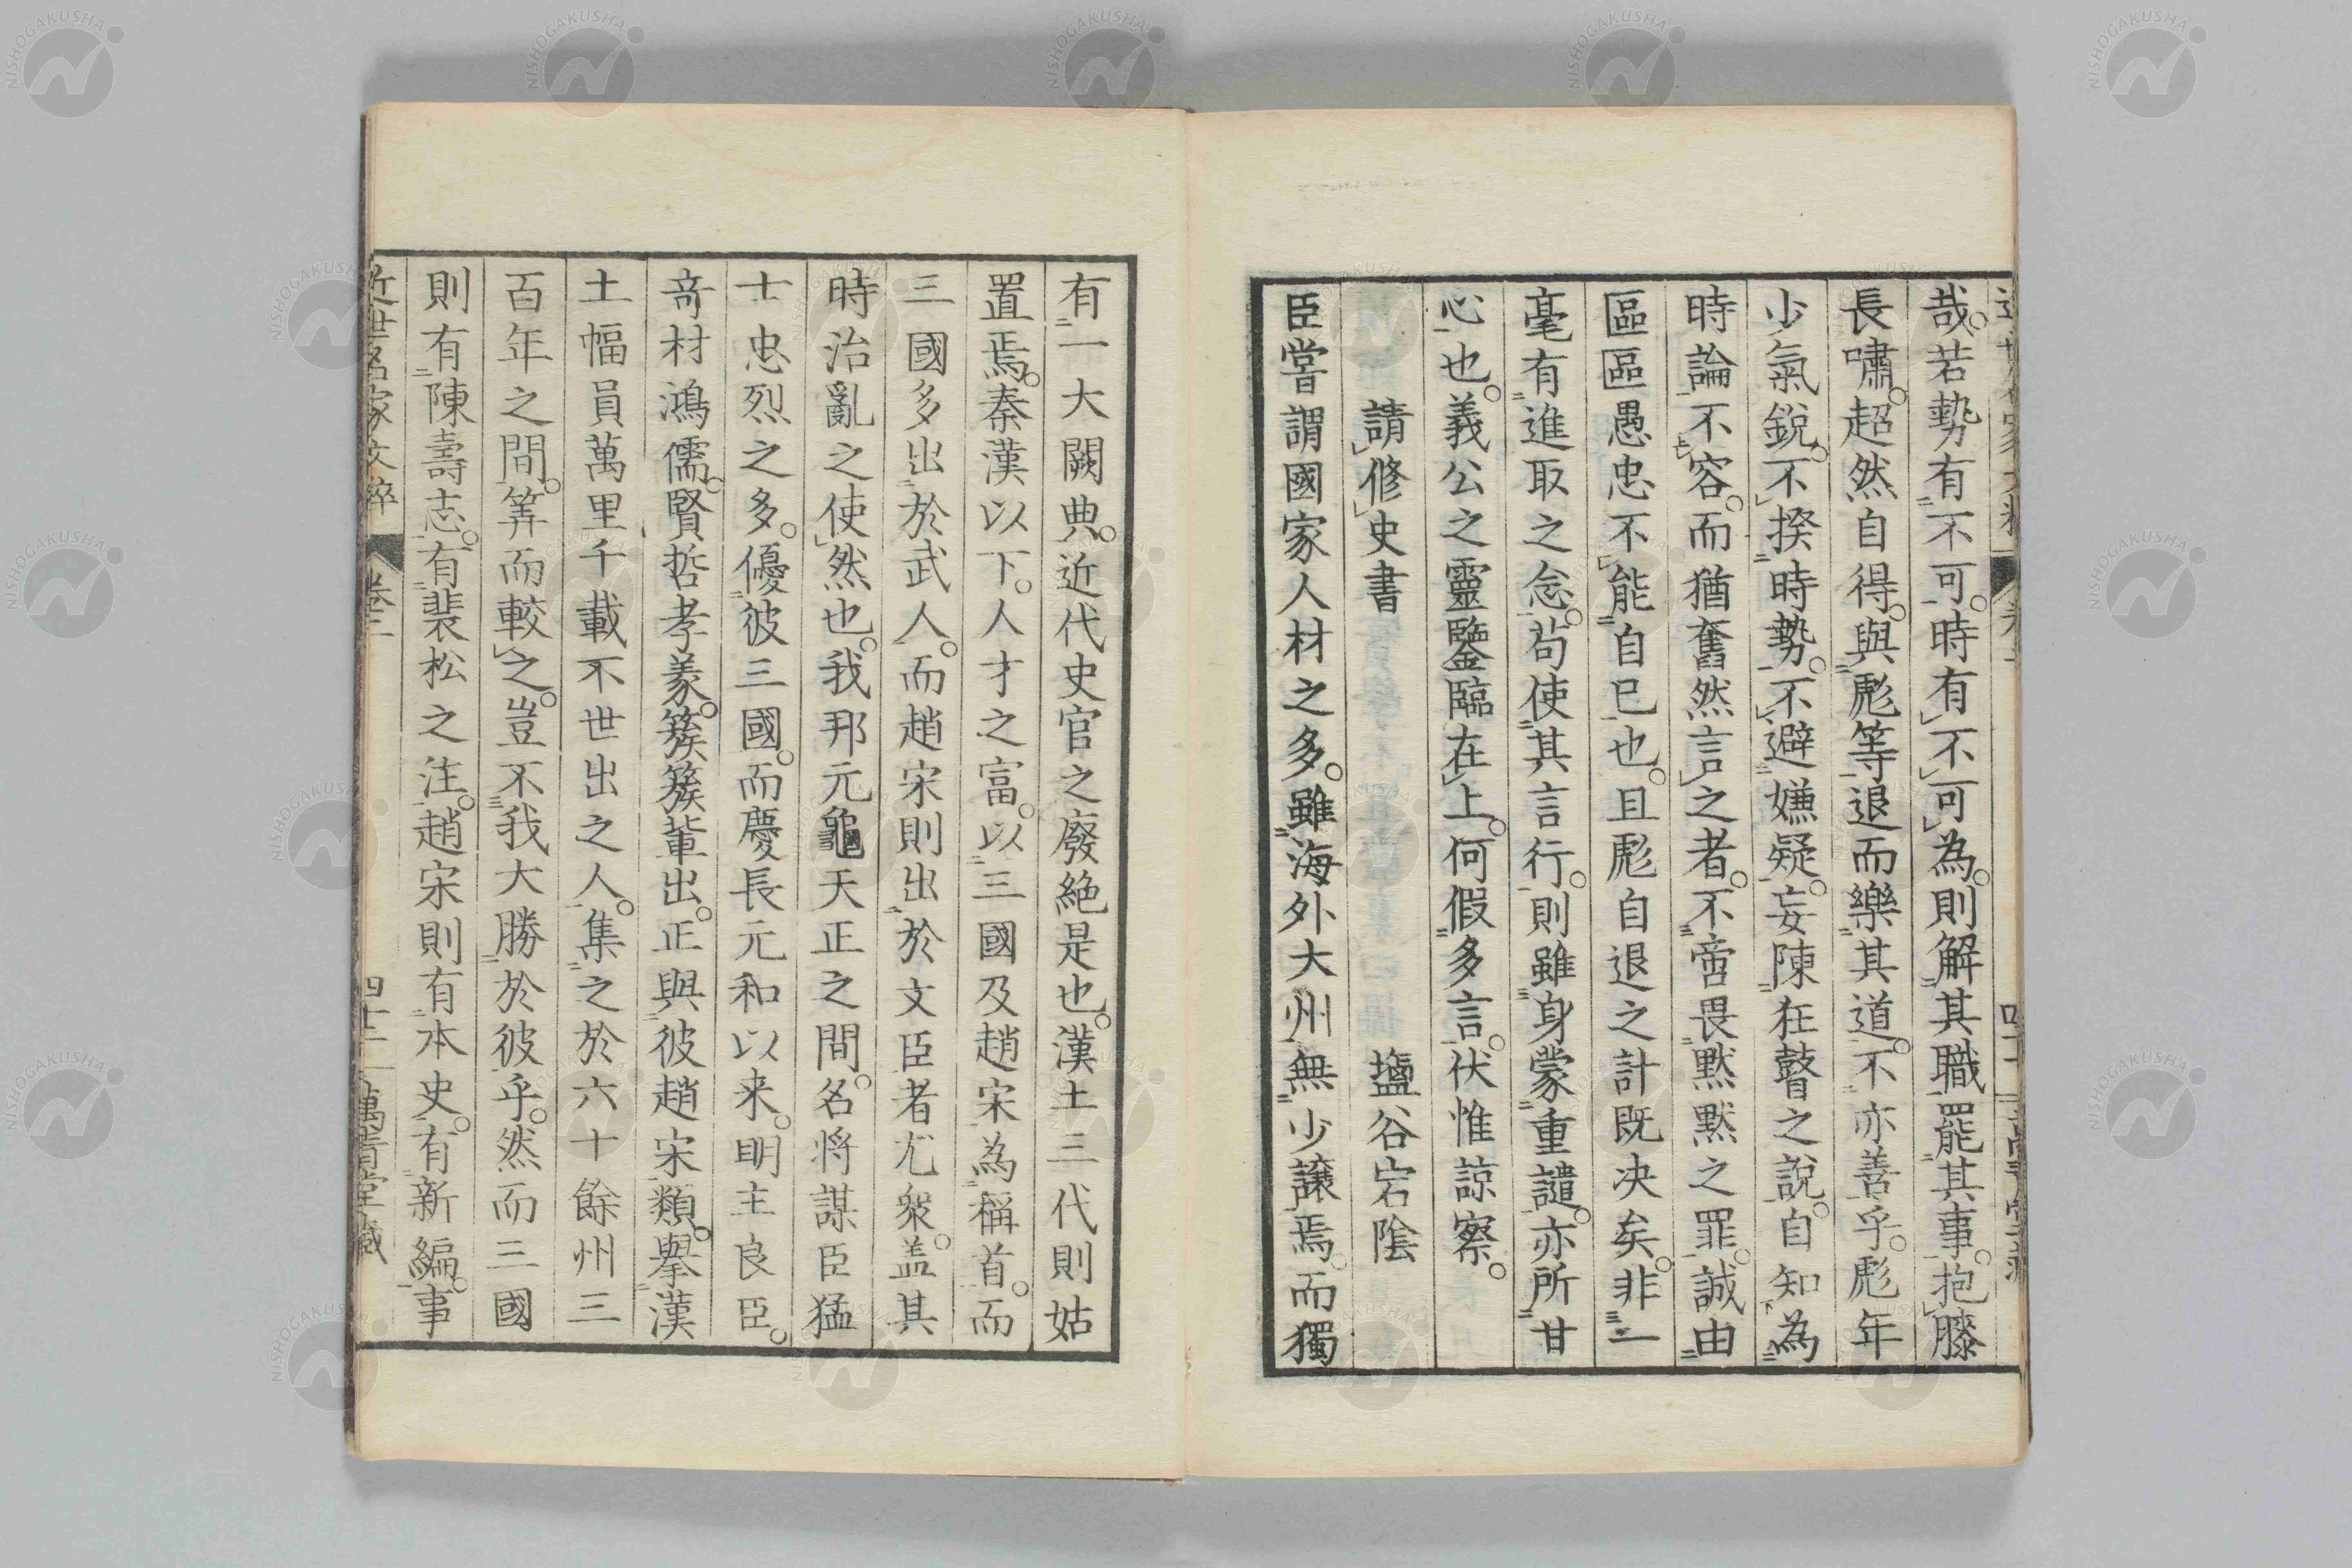 哉。若勢有不可。時有不可為。則解其職罷其事。抱膝
長嘯。超然自得。與彪等退而樂其道。不亦善乎。彪年
少氣銳。不揆時勢。不避嫌疑。妄陳狂瞽之說。自知為
時論不容。而猶奮然言之者。不啻畏黙黙之罪。誠由
區區愚忠不能自已也。且彪自退之計既决矣。非一
毫有進取之念。苟使其言行。則雖身蒙重譴。亦所甘
心也。義公之靈鑒臨在上。何假多言。伏惟諒察。
請修史書 鹽谷宕陰
臣嘗謂國家人材之多。雖海外大州無少讓焉。而獨
有一大闕典。近代史官之廢絕是也。漢土三代則姑
置焉。秦漢以下。人才之富。以三國及趙宋為稱首。而
三國多出於武人。而趙宋則出於文臣者尤衆。盖其
時治亂之使然也。我邦元龜天正之間。名将謀臣猛
士忠烈之多。優彼三國。而慶長元和以来。明主良臣。
竒材鴻儒。賢哲孝義。簇簇輩出。正與彼趙宋類。擧漢
土幅員萬里千載不世出之人。集之於六十餘州三
百年之間。筭而較之。豈不我大勝於彼乎。然而三國
則有陳壽志。有裴松之注。趙宋則有本史。有新編。事
近世名家文粹 卷二 四十二 萬青堂藏
NISHOGAKUSHA